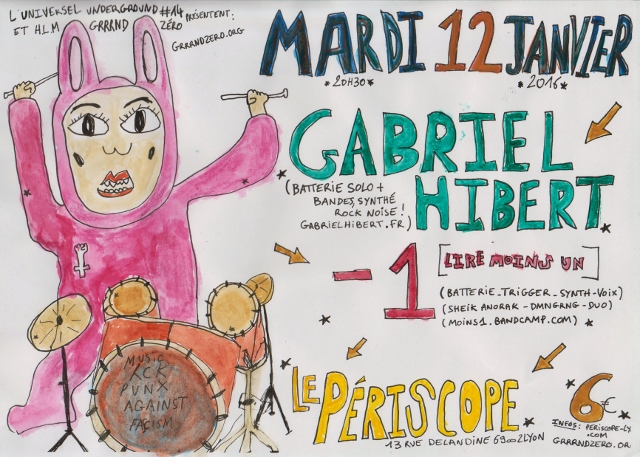 L'UNIVERSEL UNDERGROUND #14
ET H.L.M GRRRND ZÉRO PRÉSENTENT:
GRRRNDZERO.ORG
MARDI 12 JANVIER
20H30 2016
GABRIEL
HIBERT
(BATTERIE SOLO +
BANDES, SYNTHÉ
ROCK NOISE!
GABRIELHIBERT.FR)
-1 [LIRE MOINS UN]
(BATTERIE_TRIGGER_SYNTH-VOIX)
(SHEIK ANORAK - DMNGRNG - DUO)
(MOINS1.BANDCAMP.COM)
MUSIC
PUNX
AGAINST
FACISM
LE PÉRISCOPE
13 RUE DELANDINE 69002 LYON
6€
INFOS: PERISCOPE-LY
.COM
GRRRNDZERO.OR